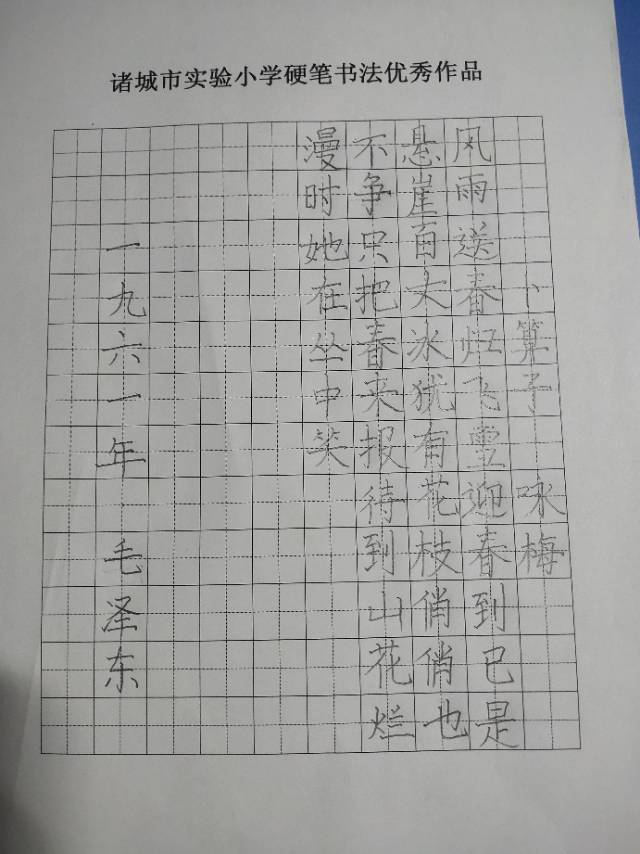 诸城市实验小学硬笔书法优秀作品
卜算子 咏梅
风雨送春归飞雪迎春到已是
悬崖百丈冰犹有花枝俏俏也
不争只把春来报待到山花烂
漫时她在丛中笑
一九六一年 毛泽东